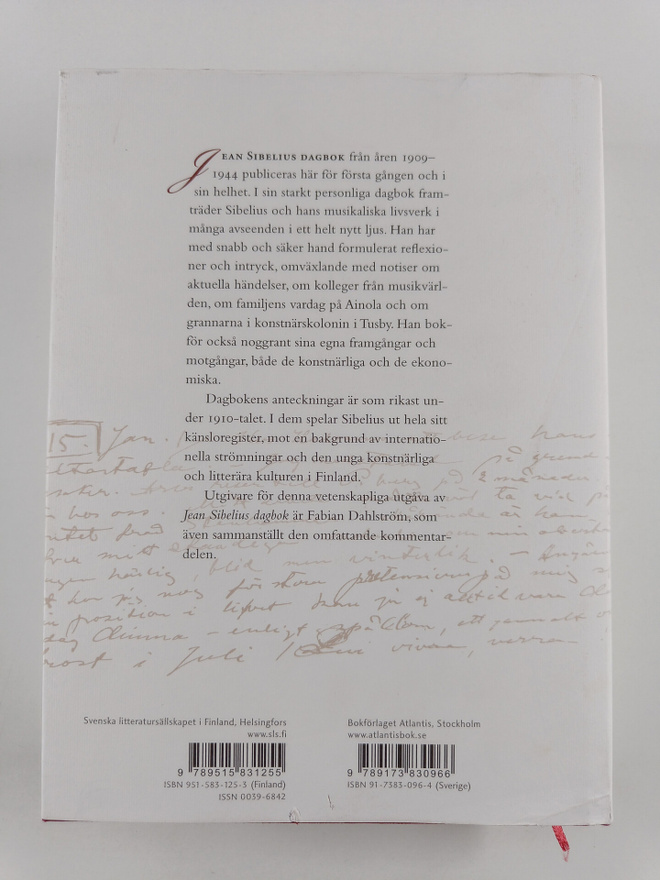 JEAN SIBELIUS DAGBOK från åren 1909–
1944 publiceras här för första gången och i
sin helhet. I sin starkt personliga dagbok fram-
träder Sibelius och hans musikaliska livsverk i
många avseenden i ett helt nytt ljus. Han har
med snabb och säker hand formulerat reflexio-
ner och intryck, omväxlande med notiser om
aktuella händelser, om kolleger från musikvärl-
den, om familjens vardag på Ainola och om
grannarna i konstnärskolonin i Tusby. Han bok-
för också noggrant sina egna framgångar och
motgångar, både de konstnärliga och de ekono-
miska.
Dagbokens anteckningar är som rikast un-
der 1910-talet. I dem spelar Sibelius ut hela sitt
känsloregister, mot en bakgrund av internatio-
nella strömningar och den unga konstnärliga
och litterära kulturen i Finland.
Utgivare för denna vetenskapliga utgåva av
Jean Sibelius dagbok är Fabian Dahlström, som
även sammanställt den omfattande kommentar-
delen.
15. Jan.
på grund
2 månader
hos oss.
blid men vinterlik.
för stora pretensioner på mig
position i lifvet
enligt
i Juli
Svenska litteratursällskapet i Finland, Helsingfors
www.sls.fi
9 789515 831255
ISBN 951-583-125-3 (Finland)
ISSN 0039-6842
Bokförlaget Atlantis, Stockholm
www.atlantisbok.se
9 789173 830966
ISBN 91-7383-096-4 (Sverige)